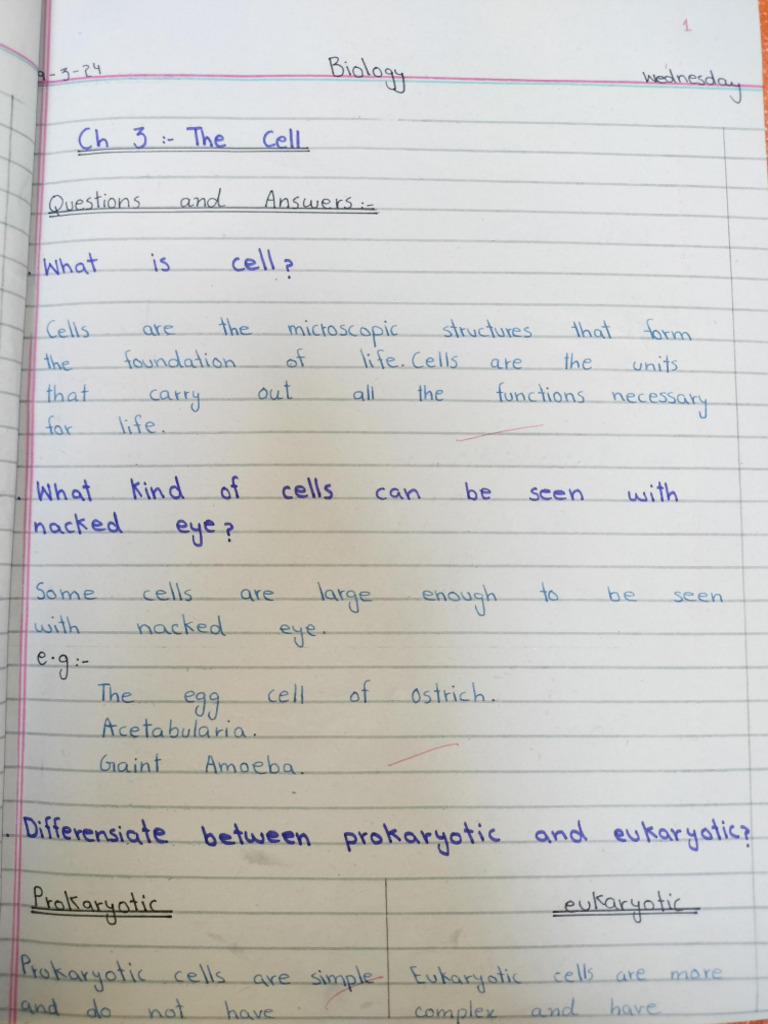 1
9-3-24 Biology Wednesday
Ch 3 :- The Cell
Questions and Answers:-
What is cell?
Cells are the microscopic structures that form
the foundation of life. Cells are the units
that carry out all the functions necessary
for life.
What kind of cells can be seen with
nacked eye?
Some cells are large enough to be seen
with nacked eye.
e.g:-
The egg cell of ostrich.
Acetabularia.
Gaint Amoeba.
Differensiate between prokaryotic and eukaryotic?
Prokaryotic eukaryotic
Prokaryotic cells are simple Eukaryotic cells are more
and do not have complex and have